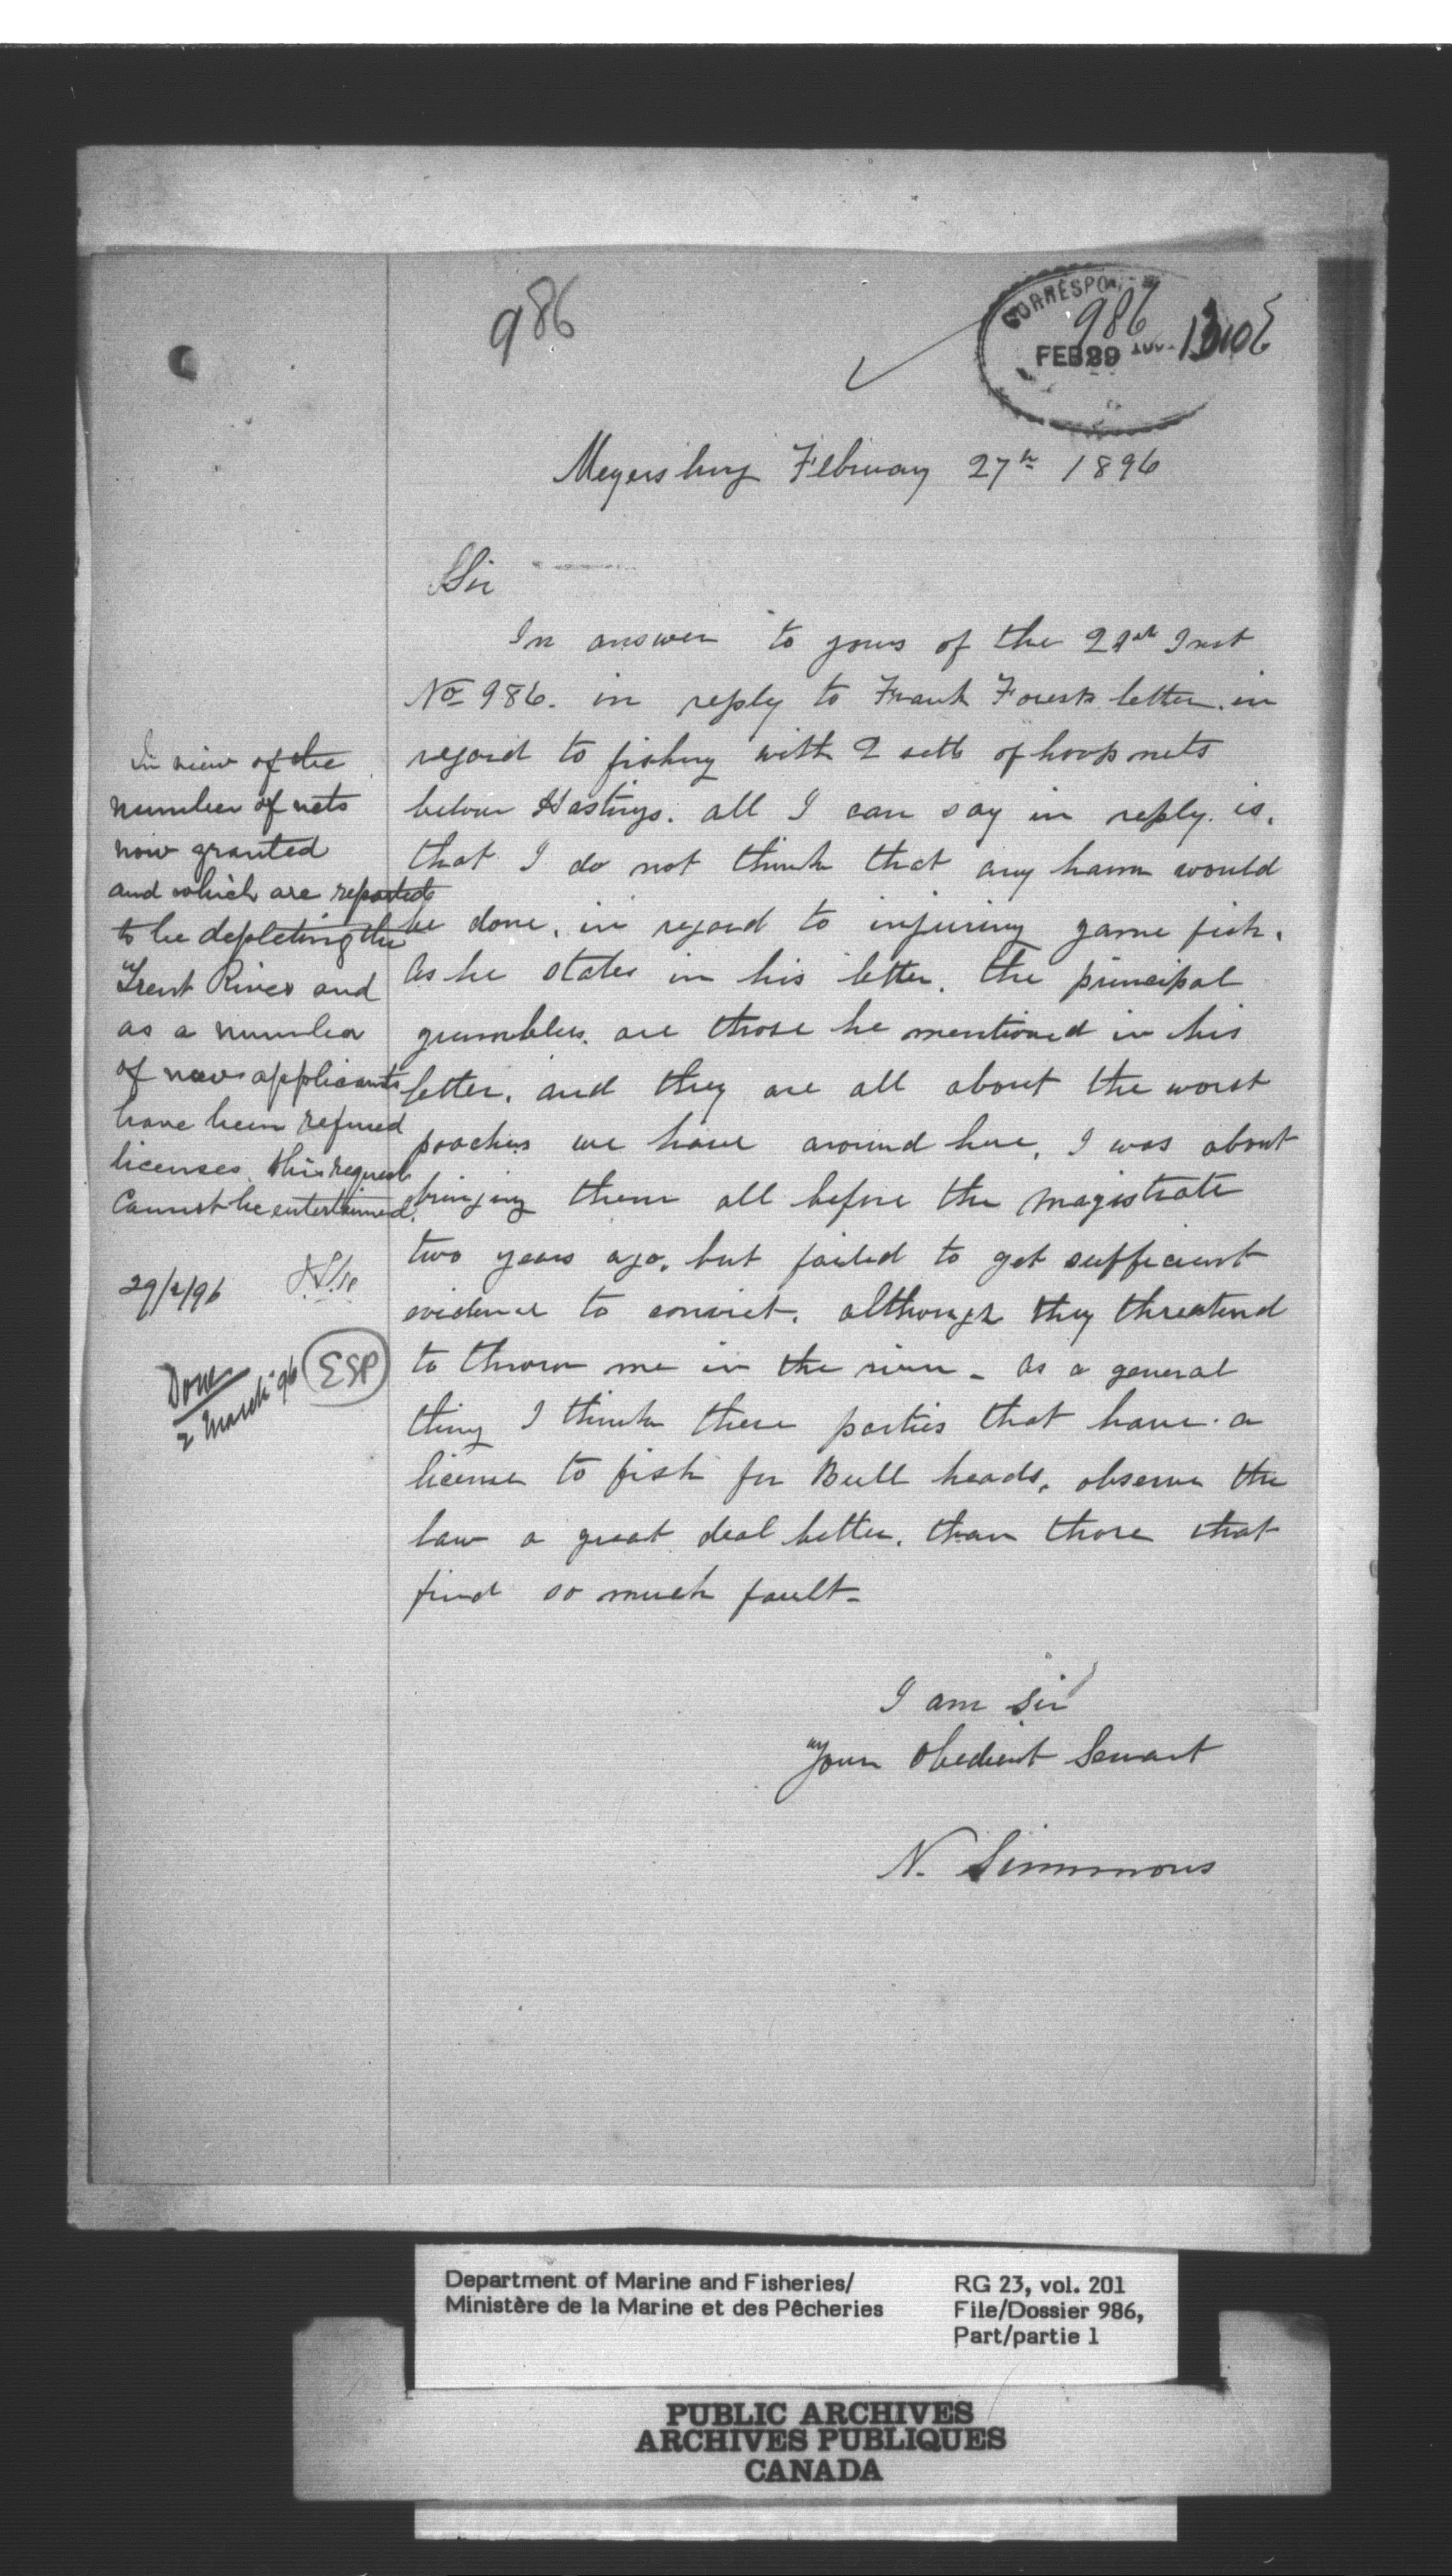 986
CORRESPON
986
FEB 29
Meyersburg February 27th 1896
Sir
In answer to yours of the
Inst
No 986. in reply to Frank Forests letter. in
regard to fishing with 2 setts of hoop nets
below Hastings. all I can say in reply. is,
that I do not think that any harm would
be done, in regard to injuring game fish.
As he states in his letter. the principal
grumblers. are those he mentioned in his
letter. and they are all about the worst
poachers we have around here, I was about
bringing them all before the magistrate
two years ago, but failed to get sufficient
evidence to convict. although they threatend
to throw me in the river - As a general
thing I think these parties that have a
license to fish for Bull heads, observe the
law a great deal better. than those that
find so much fault-
I am Sir
Your Obedient Servant
N. Simmons
In view of the
number of nets
now granted
and which are reported
to be depleting the
Trent River and
as a number
of new applicants
have been refused
licenses, this request
cannot be entertained.
29/2/96
Done
2 March '96
ESP
Department of Marine and Fisheries/
Ministère de la Marine et des Pêcheries
RG 23, vol. 201
File/Dossier 986,
Part/partie 1
PUBLIC ARCHIVES
ARCHIVES PUBLIQUES
CANADA